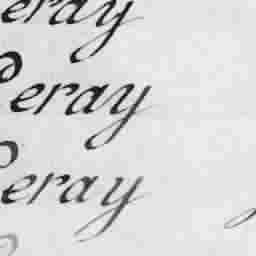 eray
eray
eray